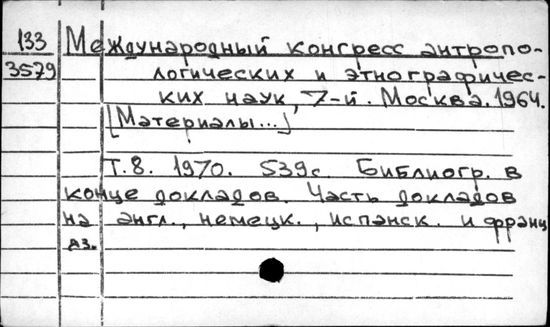 133 Международный конгресс антропо-
3579 логических и этнографичес-
ких наук, 7-й. Москва. 1964.
[Материалы...]
Т. 8. 1970. 539с. Библиогр. в
конце докладов. Часть докладов
на англ., немецк., испанск. и франц
яз.